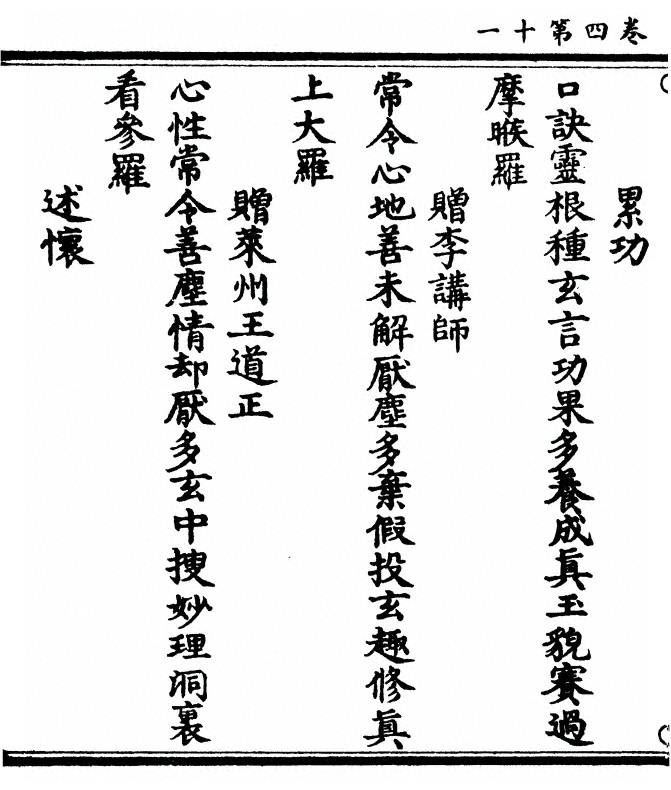 卷四第十一
累功
口訣靈根種玄言功果多養成眞玉貌賽過
摩睺羅
贈李講師
常令心地善未解厭塵多棄假投玄趣修眞
上大羅
贈萊州王道正
心性常令善塵情却厭多玄中搜妙理洞裏
看參羅
述懷